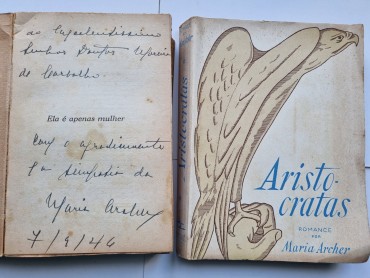 ao Excelentíssimo
Senhor Doutor
de Carvalho
Ela é apenas mulher
Com o agradecimento
e a simpatia da
Maria Archer
7/9/46
Aristocratas
Aristo-
cratas
ROMANCE
POR
Maria Archer